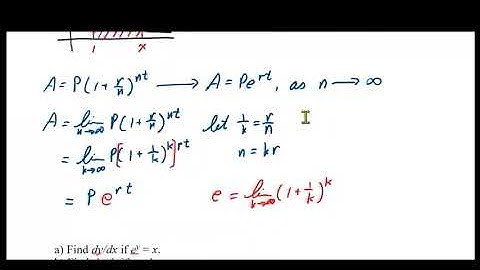 1 x
A = P(1 + r/n)^nt → A = Pe^rt, as n → ∞
A = lim n→∞ P(1 + r/n)^nt let 1/k = r/n
= lim k→∞ P[(1 + 1/k)^k]^rt n = kr
= P e^rt e = lim k→∞ (1 + 1/k)^k
a) Find dy/dx if e^y = x.